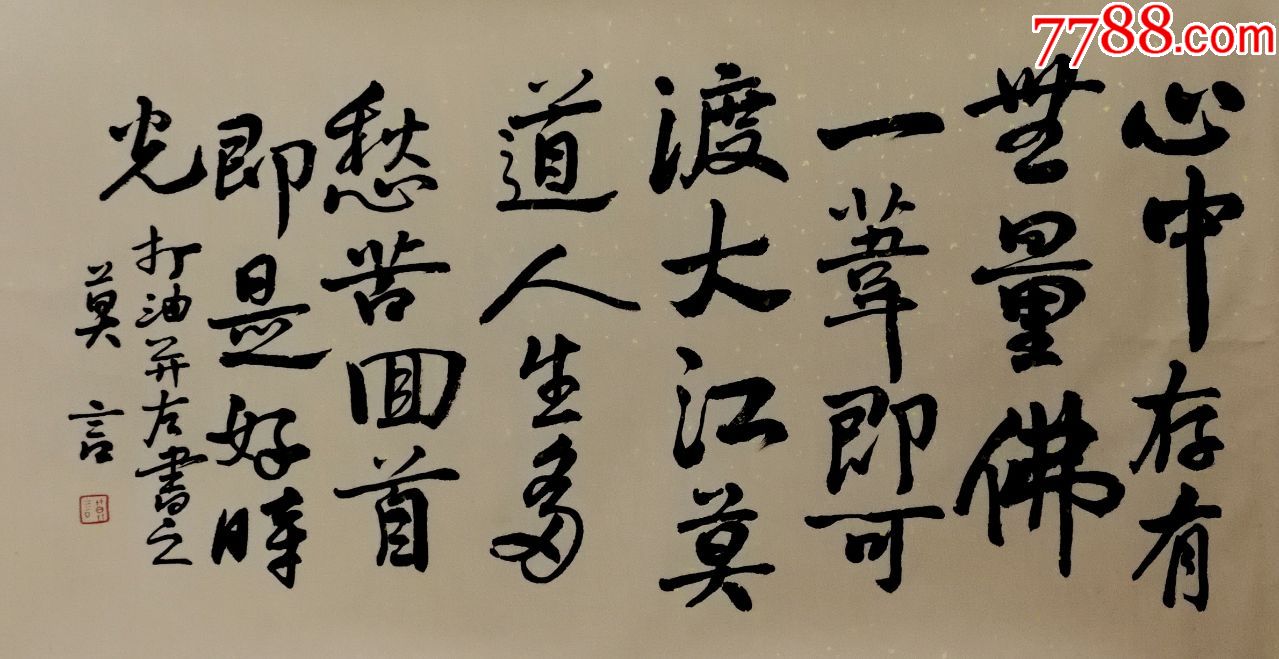 7788.com
心中存有
無量佛
一葦即可
渡大江莫
道人生多
愁苦回首
即是好時
光
打油并左書之
莫言